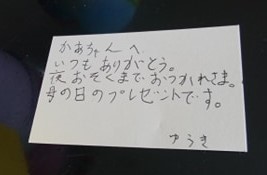 かあちゃんへ
いつもありがとう。
夜おそくまでおつかれさま。
母の日のプレゼントです。
ゆうき